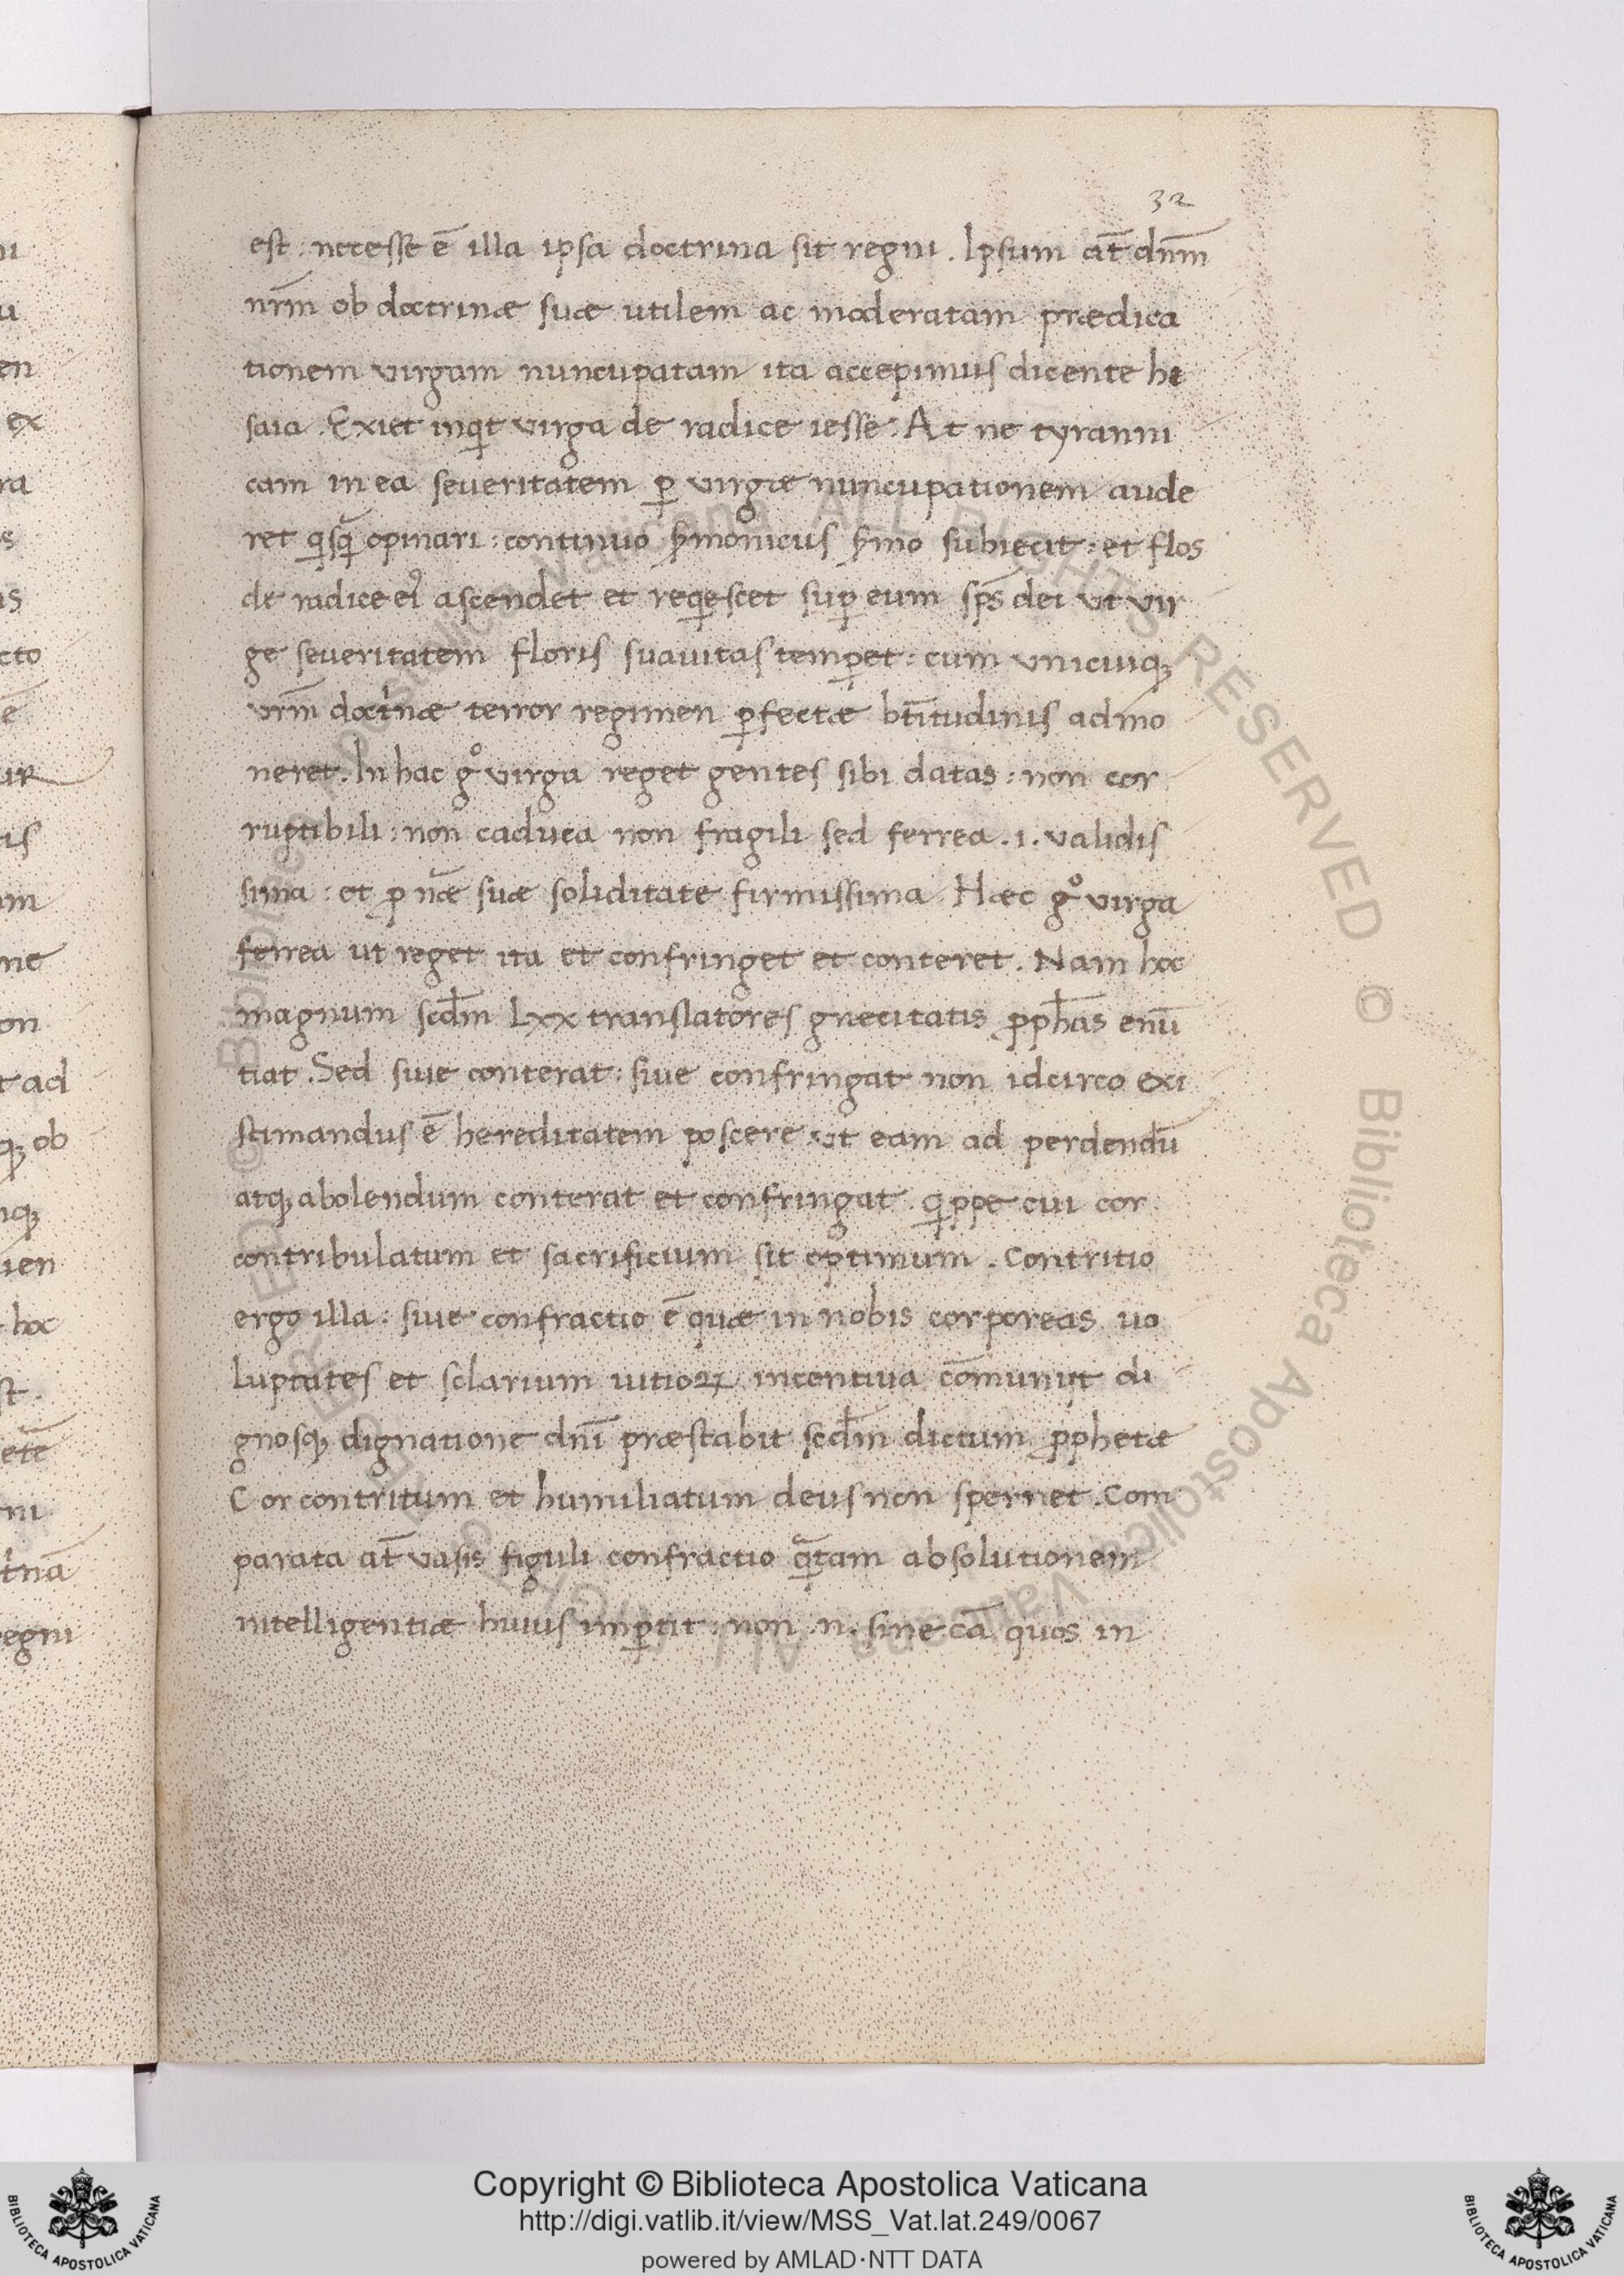 32
est : necesse ē illa ipsa doctrina sit regni . Ipsum at̄ dn̄m
nr̄m ob doctrinæ suæ utilem ac moderatam prædica
tionem virgam nuncupatam ita accepimus dicente he
saia . Exiet inqͥt virga de radice iesse . At ne tyranni
cam in ea severitatem ꝑ virgæ nuncupationem aude
ret qͥsqᷓ opinari : continuo ẜmonicus ẜmo subiecit : et flos
de radice eiꝰ ascendet et reqͥescet suꝑ eum sp̄s dei ut vir
ge severitatem floris suavitas temꝑet : cum unicuiqꝫ
vr̄m doctͥnæ terror regimen ꝑfectæ bt̄itudinis admo
neret . In hac gͦ virga reget gentes sibi datas : non cor
ruptibili : non caduca non fragili sed ferrea . i . validis
sima : et ꝓ nāe suæ soliditate firmissima . Hæc gͦ virga
ferrea ut reget ita et confringet et conteret . Nam hoc
magnum scd̄m Lxx translatores græcitatis ꝓph̄as enū
tiat . Sed siue conterat : siue confringat non idcirco exi
stimandus ē hereditatem poscere ut eam ad perdendū
atqꝫ abolendum conterat et confringat . qͥppe cui cor
contribulatum et sacrificium sit optimum . Contritio
ergo illa : siue confractio ē quæ in nobis corporeas uo
luptates et sclarium uitioꝝ incentiva com̄unit di
gnosqꝫ dignatione dn̄i præstabit scd̄m dictum ꝓphetæ
Cor contritum et humiliatum deus non spernet . Com
parata at̄ vasis figuli confractio qᷓtam absolutionem
intelligentiæ huius imꝑtit : non .n. sine cā quos in
Copyright © Biblioteca Apostolica Vaticana
http://digi.vatlib.it/view/MSS_Vat.lat.249/0067
powered by AMLAD·NTT DATA